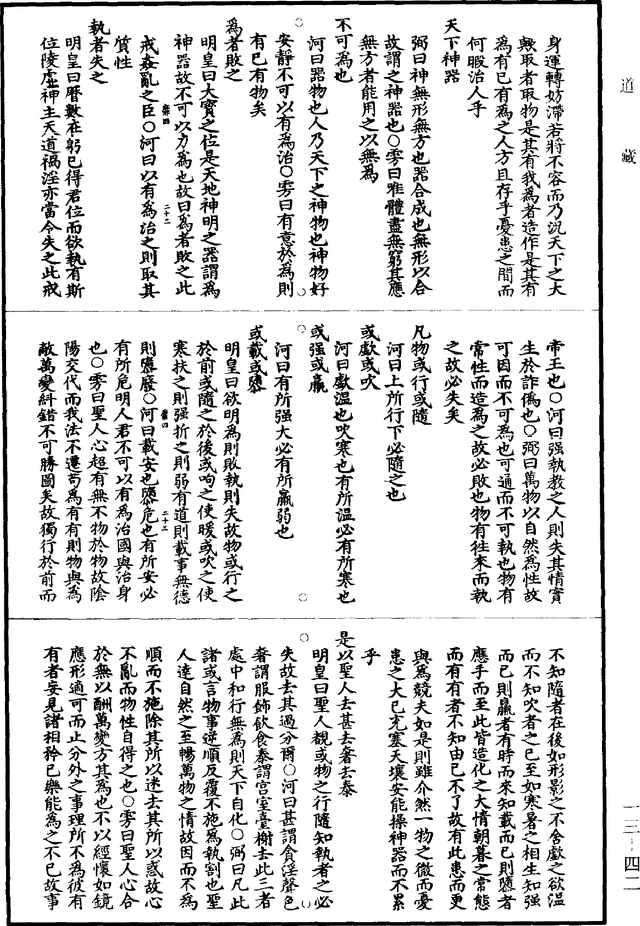 道藏
身運轉妨滯若將不容而乃況天下之大
歟取者取物是其有我爲者造作是其有
爲有已有爲之人方且存乎憂患之間而
何暇治人乎
天下神器
弼曰神無形無方也器合成也無形以合
故謂之神器也○雱曰唯體盡無窮其應
無方者能用之以無爲
不可爲也
河曰器物也人乃天下之神物也神物好
安靜不可以有爲治○雱曰有意於爲則
有已有物矣
爲者敗之
明皇曰大寶之位是天地神明之器謂爲
神器故不可以力爲也故曰爲者敗之此
戒姦亂之臣○河曰以有爲治之則取其
質性
執者失之
明皇曰曆數在躬已得君位而欲執有斯
位陵虐神主天道禍淫亦當令失之此戒
帝王也○河曰强執教之人則失其情實
生於詐僞也○弼曰萬物以自然爲性故
可因而不可爲也可通而不可執也物有
常性而造爲之故必敗也物有往來而執
之故必失矣
凡物或行或隨
河曰上所行下必隨之也
或歔或吹
河曰歔溫也吹寒也有所溫必有所寒也
或强或羸
河曰有所强大必有所羸弱也
或載或隳
明皇曰欲明爲則敗執則失故物或行之
於前或隨之於後或呴之使暖或吹之使
寒扶之則强折之則弱有道則載事無德
則隳廢○河曰載安也隳危也有所安必
有所危明人君不可以有爲治國與治身
也○雱曰聖人心超有無不物於物故陰
陽交代而我法不遷苟爲有有則物與爲
敵萬變糾錯不可勝圖矣故獨行於前而
不知隨者在後如形影之不舍歔之欲溫
而不知吹者之已至如寒暑之相生知强
而已則羸者有時而來知載而已則隳者
應手而至此皆造化之大情朝暮之常態
而有有者不知由已不了故有此患而更
與爲競夫如是則雖介然一物之微而憂
患之大已充塞天壤安能操神器而不累
乎
是以聖人去甚去奢去泰
明皇曰聖人覩或物之行隨知執者之必
失故去其過分爾○河曰甚謂貪淫聲色
奢謂服飾飲食泰謂宮室臺榭去此三者
處中和行無爲則天下自化○弼曰凡此
諸或言物事逆順反覆不施爲執割也聖
人達自然之至暢萬物之情故因而不爲
順而不施除其所以迷去其所以惑故心
不亂而物性自得之也○雱曰聖人心合
於無以酬萬變方其爲也不以經懷如鏡
應形適可而止分外之事理所不爲彼有
有者妄見諸相矜已樂能爲之不已故事
一三-四二